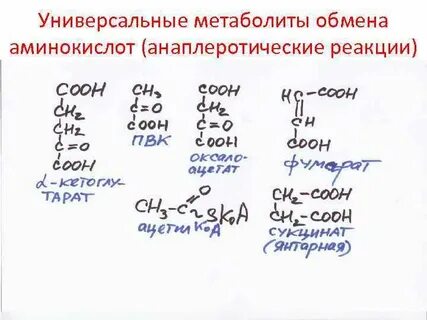 Универсальные метаболиты обмена
аминокислот (анаплеротические реакции)
COOH
CH2
CH2
C=O
COOH
α-кетоглу-
тарат
CH3
C=O
COOH
ПВК
COOH
CH2
C=O
COOH
оксало-
ацетат
HC-COOH
CH
COOH
фумарат
CH3-C
O
~SKoA
ацетил КоА
CH2-COOH
CH2-COOH
сукцинат
(янтарная)